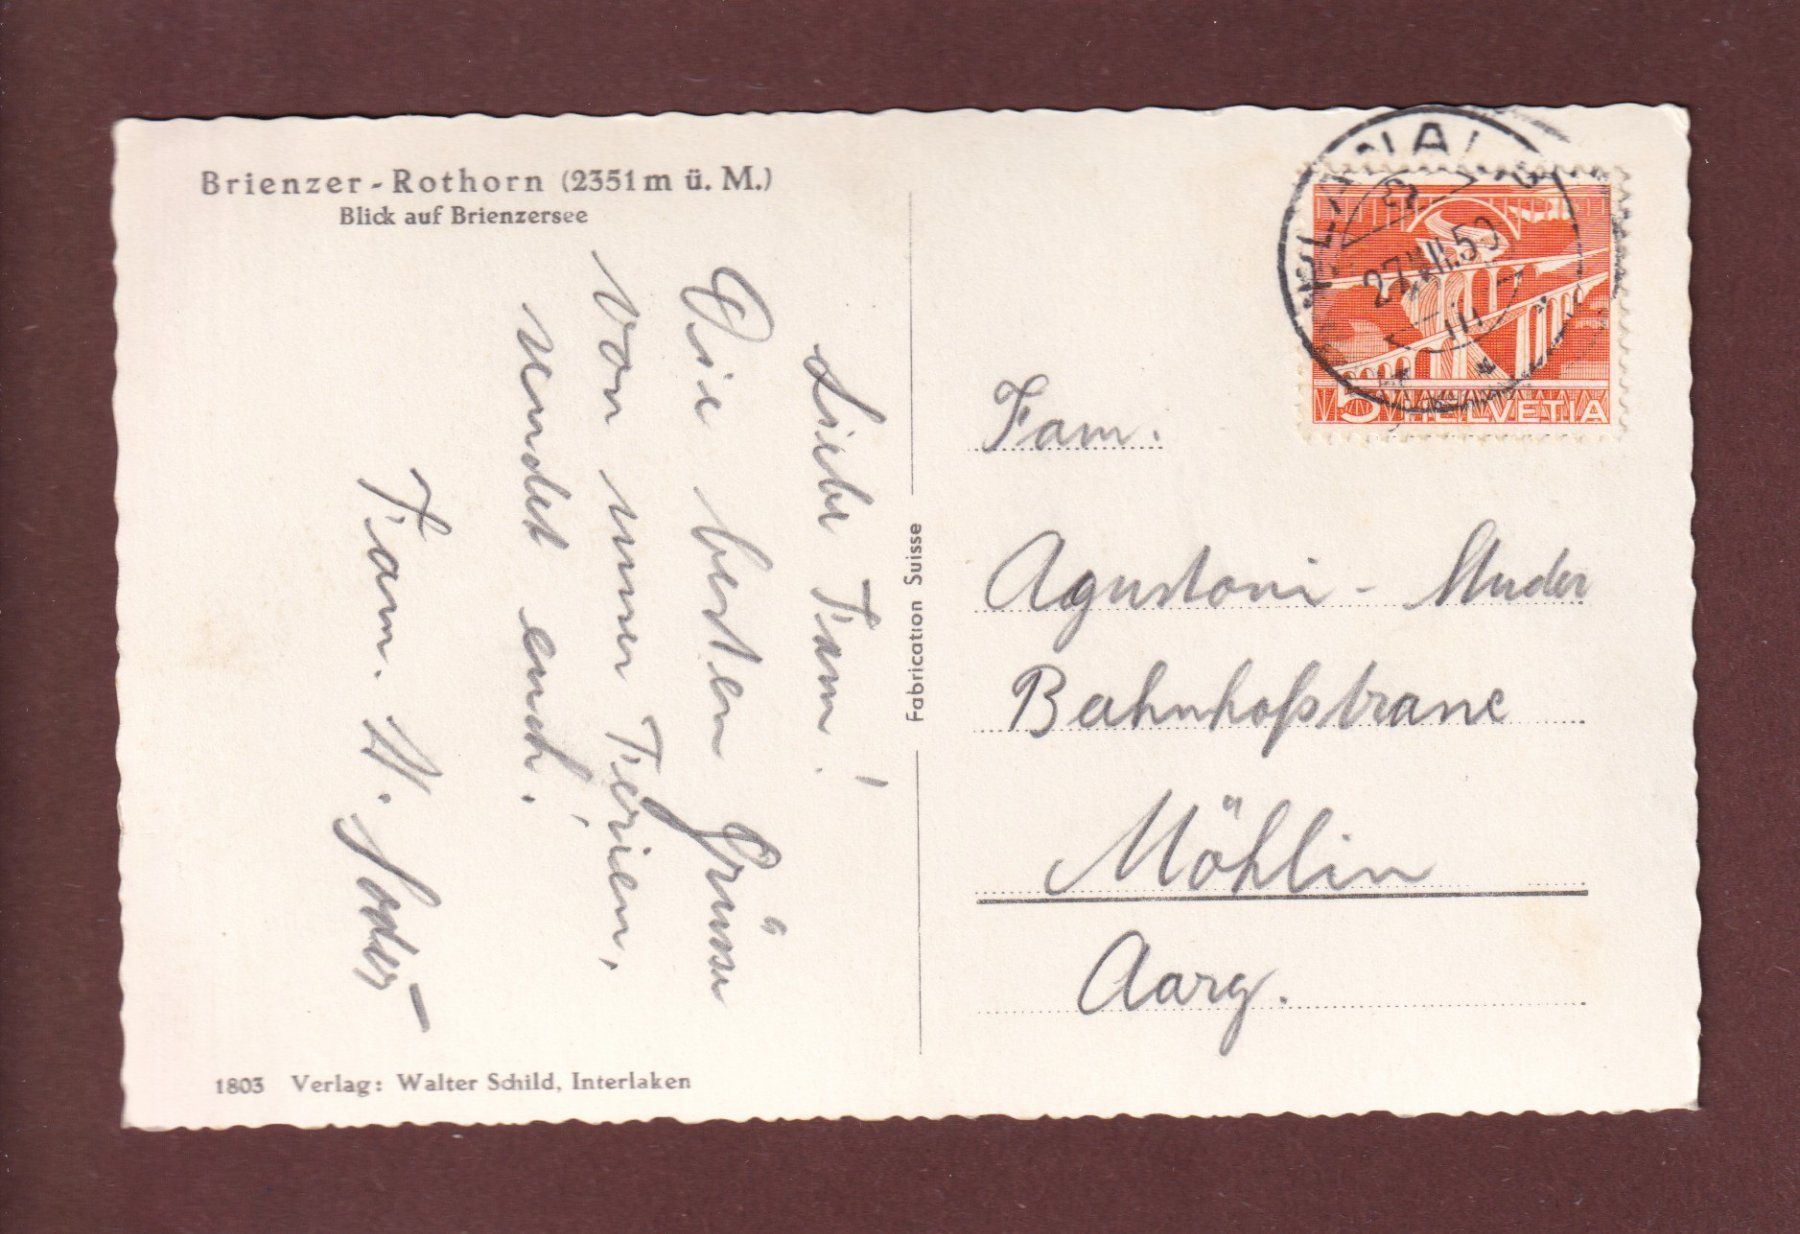 Brienzer-Rothorn (2351 m ü. M.)
Blick auf Brienzersee
Liebe Fam!
Die besten Grüsse
von unser Ferien,
sendet euch.
Fam. W. Soder
1803 Verlag: Walter Schild, Interlaken
Fabrication Suisse
27. VII. 50
5 HELVETIA
Fam.
Agustoni - Studer
Bahnhofstrasse
Möhlin
Aarg.